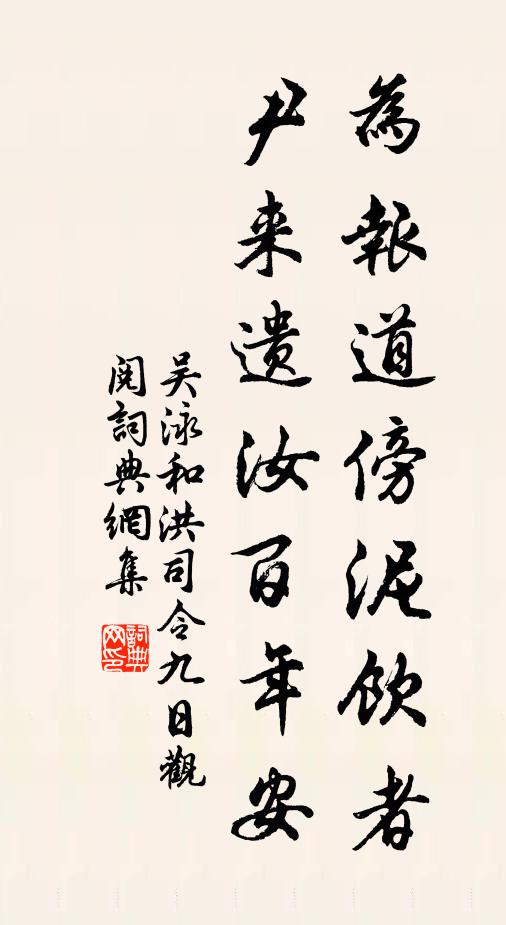 為報道傍泥飲者
尹来遺汝百年安
吴泳和洪司令九日觀
閱詞典網集
詞典
網印